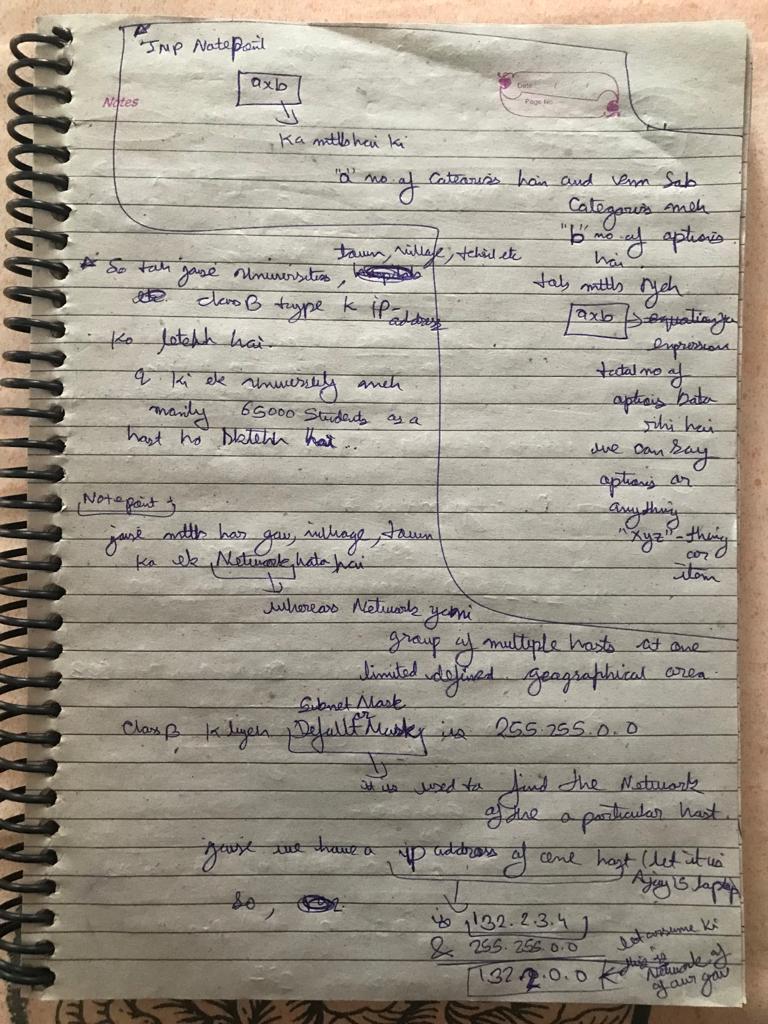 * JMP Notepoint
axb
Notes
Date
Page No
Ka mtlb hai ki
"a" no. of Catearies hain and unn Sab
Categoris meh
"b" no of options
hai
tab mtlb yeh
axb → expression
total no of
options bata
rihi hai
we can say
options or
anything
"xyz" - thing
or
item
* So tab jaise Universities, town, village, tehsil etc
class B type k ip-address
Ko letehh hai.
Q ki ek University meh
65000 Students as a
host ho Sktehh hai..
Notepoint :
jaise mtlb har gav, village, town
ka ek Network hota hai
whereas Network yani
group of multiple hosts at one
limited defined geographical area.
Subnet Mask
or
Class B k liyeh Defallt Mask is 255.255.0.0
it is used to find the Network
of the a particular host.
jaise we have a ip address of one host (let it is
Ajay's laptop
So,
is 132.2.3.4
& 255.255.0.0
132.2.0.0
let assume ki
this is
Network of
our gav